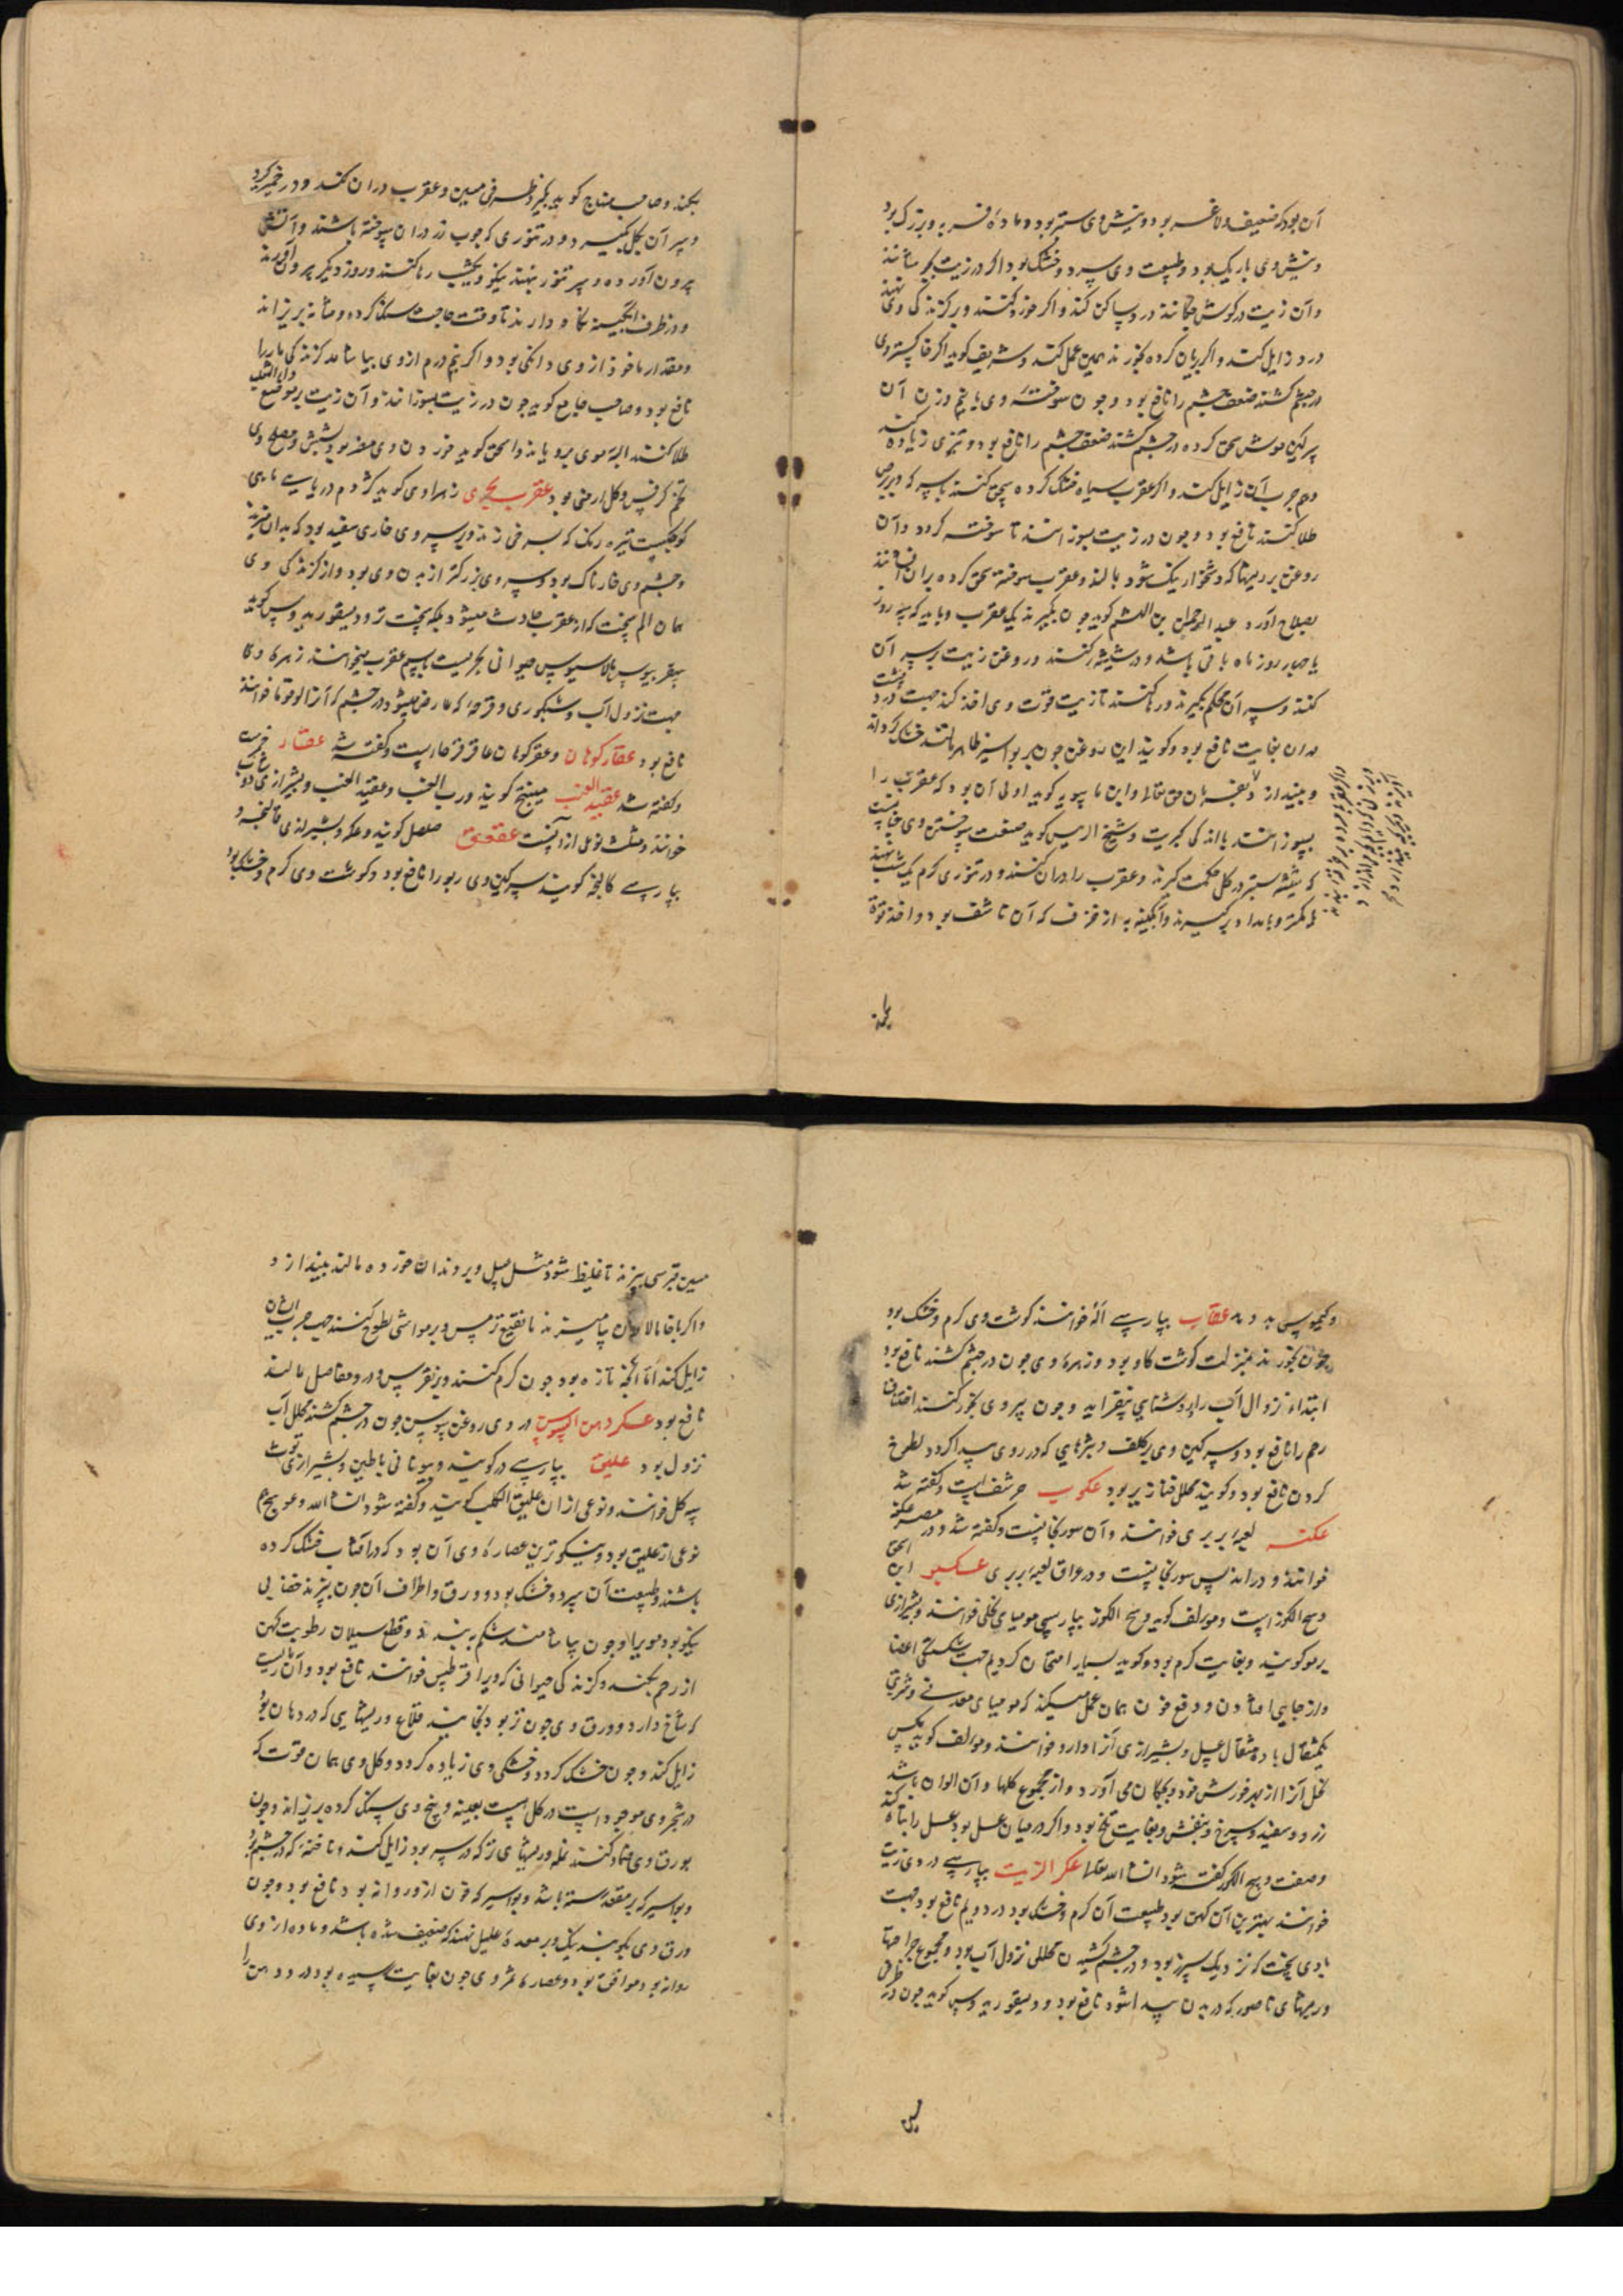 آن بود که ضعیف و لاغر بود و نیش وی ستبر بود و ماده فربه و بزرک بود
و نیش وی باریک بود و طبیعت وی سرد و خشک بود اکر در زیت بجوشانند
و آن زیت در کوش چکانند درد ساکن کند و اکر خرد کنند و بر کزندکی وی نهند
درد زایل کند و اکر بریان کرده بخورند همین عمل کند و شریف کوید اکر خاکستر وی
در چشم کشند ضعف چشم را نافع بود و چون سوخته وی با نیم وزن آن
سرکین موش سحق کرده در چشم کشند ضعف چشم را نافع بود و تیزی زیاده کند
و هم جرب آن زایل کند و اکر عقرب سیاه خشک کرده سحق کنند با سرکه و بر برص
طلا کنند نافع بود و چون در زیت بسوزانند تا سوخته کردد و آن
روغن بر ریشها که دشخوار نیک شود بمالند و عقرب سوخته سحق کرده بران افشانند
بصلاح آورد عبد الرحمن بن الهیثم کوید چون بکیرند یک عقرب و باید که سه روز
یا چهار روز ماه باقی باشد و در شیشه کنند و روغن زیت بر سر آن
کنند و سر آن محکم بکیرند و رها کنند تا زیت قوت وی اخذ کند جهت درد پشت
و ران بغایت نافع بود و کویند این روغن چون بر بواسیر ظاهر مالند خشک کرداند
و بیندازد
بسوزانند با اندکی کبریت و شیخ الرئیس کوید صفت سوختن وی چنانست
که شیشه ستبر در کل حکمت کیرند و عقرب را دران کنند و در تنوری کرم یک شب بنهند
یا کمتر و بامداد برکیرند و آبکینه به از خزف که آن ناشف بود و اخذ قوة
بکند
بکند و صاحب منهاج کوید بکیرند ظرفی مسین و عقرب دران کنند و در خمیر کیرند
و سر آن بکل بکیرند و در تنوری که چوب رز دران سوخته باشند و آتش
بیرون آورده و سر تنور بنهند نیکو و یکشب رها کنند و روز دیکر بیرون آورند
و در ظرف آبکینه نکاه دارند تا وقت حاجت سنک کرده و مثانه بریزاند
و مقدار ماخوذ از وی دانکی بود و اکر نیم درم از وی بیاشامد کزندکی مار را
نافع بود و صاحب جامع کوید چون در زیت بسوزانند و آن زیت بر موضع داء الثعلب
طلا کنند البته موی برویاند و اسحق کوید خوردن وی مضر بود بشش و مصلح وی
تخم کرفس و کل ارمنی بود عقرب بحری زهراوی کوید کژدم دریایی ماهی
کوچکیست تیره رنک که بسرخی زند و بر سر وی خاری سفید بود که بدان ضرب زند
و چشم وی خارناک بود و سر وی بزرکتر از بدن وی بود و از کزندکی وی
همان الم سخت که از عقرب حادث میشود بلکه سخت تر و دیسقوریدوس کوید
سقربیوس بالاسیوس حیوانی بحریست باسم عقرب میخوانند زهره وی
جهت نزول آب و شبکوری و قرحه که عارض میشود در چشم که آنرا لوقوما خوانند
نافع بود عقار کوهان و عقر کوهان عاقرقرحاست و کفته شد عقار خمرست
و کفته شد عقید العنب میبختج کویند و رب العنب و عقید العنب و بشیرازی دوشاب
خوانند و مثلث نوعی از آنست عقعق صلصل کویند و عکه و بشیرازی قالنجه و
بپارسی کالنجه کویند سرکین وی ربو را نافع بود و کوشت وی کرم و خشک بود
و کیموس بد دهد عقاب بپارسی اله خوانند کوشت وی کرم و خشک بود
چون بخورند بمنزلت کوشت کاو بود و زهره وی چون در چشم کشند نافع بود
ابتداء نزول آب را و روشنایی بیفزاید و چون پر وی بخور کنند اختناق
رحم را نافع بود و سرکین وی بر کلف و بثرهایی که در روی پیدا کردد لطوخ
کردن نافع بود و کویند محلل خنازیر بود عکوب حرشف است و کفته شد
عکنه لعبه بربری خوانند و آن سورنجانست و کفته شد و در مصر عکنه
خوانند و در اندلس سورنجانست و در عراق لعبه بربری عکبر اسحق ابن
وسخ الکوز است و مولف کوید وسخ الکوز بپارسی مومیای نحلی خوانند و بشیرازی
برمو کویند و بغایت کرم بود و کوید بسیار امتحان کردیم جهت شکستکی اعضا
و از جایی افتادن و دفع خون همان عمل میکند که مومیای معدنی و شربتی
یکمثقال با ده مثقال عسل و بشیرازی آنرا دارو خوانند و مولف کوید مکس
نحل آنرا از بهر خورش خود و بچکان می آورد و از مجموع کلها و آن الوان باشد
زرد و سفید و سرخ و بنفش و بغایت تلخ بود و اکر در میان عسل بود عسل را تباه کند
و صفت وسخ الکور کفته شود ان شاء الله تعالی عکر الزیت بپارسی دردی زیت
خوانند بهترین آن کهن بود طبیعت آن کرم و خشک بود در دویم نافع بود جهت
بادی سخت که نزدیک سپرز بود و در چشم کشیدن محلل نزول آب بود و مجموع جراحتها
و ریشهای ناصور که در بدن پیدا شود نافع بود و دیسقوریدوس کوید چون در ظرفی
مس
مسین قبرسی بپزند تا غلیظ شود مثل عسل و بر دندان خورده مالند بیندازد
و اکر با خامالاون بیامیزند تا نقیع ترمس و بر مواشی لطوخ کنند جرب ایشان
زایل کند اما آنچه تازه بود چون کرم کنند و بر نقرس و درد مفاصل مالند
نافع بود عکر دهن السوسن دردی روغن سوسن چون در چشم کشند محلل آب
نزول بود علیق بپارسی در کویند و بیونانی باطس و بشیرازی توت
سه کل خوانند و نوعی از ان علیق الکلب کویند و کفته شود ان شاء الله و عوسج هم
نوعی از علیق بود و نیکوترین عصاره وی آن بود که در آفتاب خشک کرده
باشند و طبیعت آن سرد و خشک بود و ورق و اطراف آن چون بپزند خضابی
نیکو بود موی را و چون بیاشامند شکم ببندد و قطع سیلان رطوبت کهن
از رحم بکند و کزندکی حیوانی که ویرا قرطس خوانند نافع بود و آن ماریست
که شاخ دارد و ورق وی چون تر بود بخایند قلاع و ریشهایی که در دهان بود
زایل کند و چون خشک کردد و خشکی وی زیاده کردد و کل وی همان قوت که
در ثمر وی موجود است در کل هست بعینه و بیخ وی سنک کرده بریزاند و چون
بورق وی ضماد کنند نمله و ریشهای تر که در سر بود زایل کند و ناخنه که در چشم بود
و بواسیر که بر مقعد رسته باشد و بواسیر که خون ازو روانه بود نافع بود و چون
ورق وی بکوبند نیک و بر معده علیل نهند که ضعیف شده باشد و ماده از وی
روانه بود موافق بود و عصاره ثمر وی چون بغایت رسیده بود درد دهن را